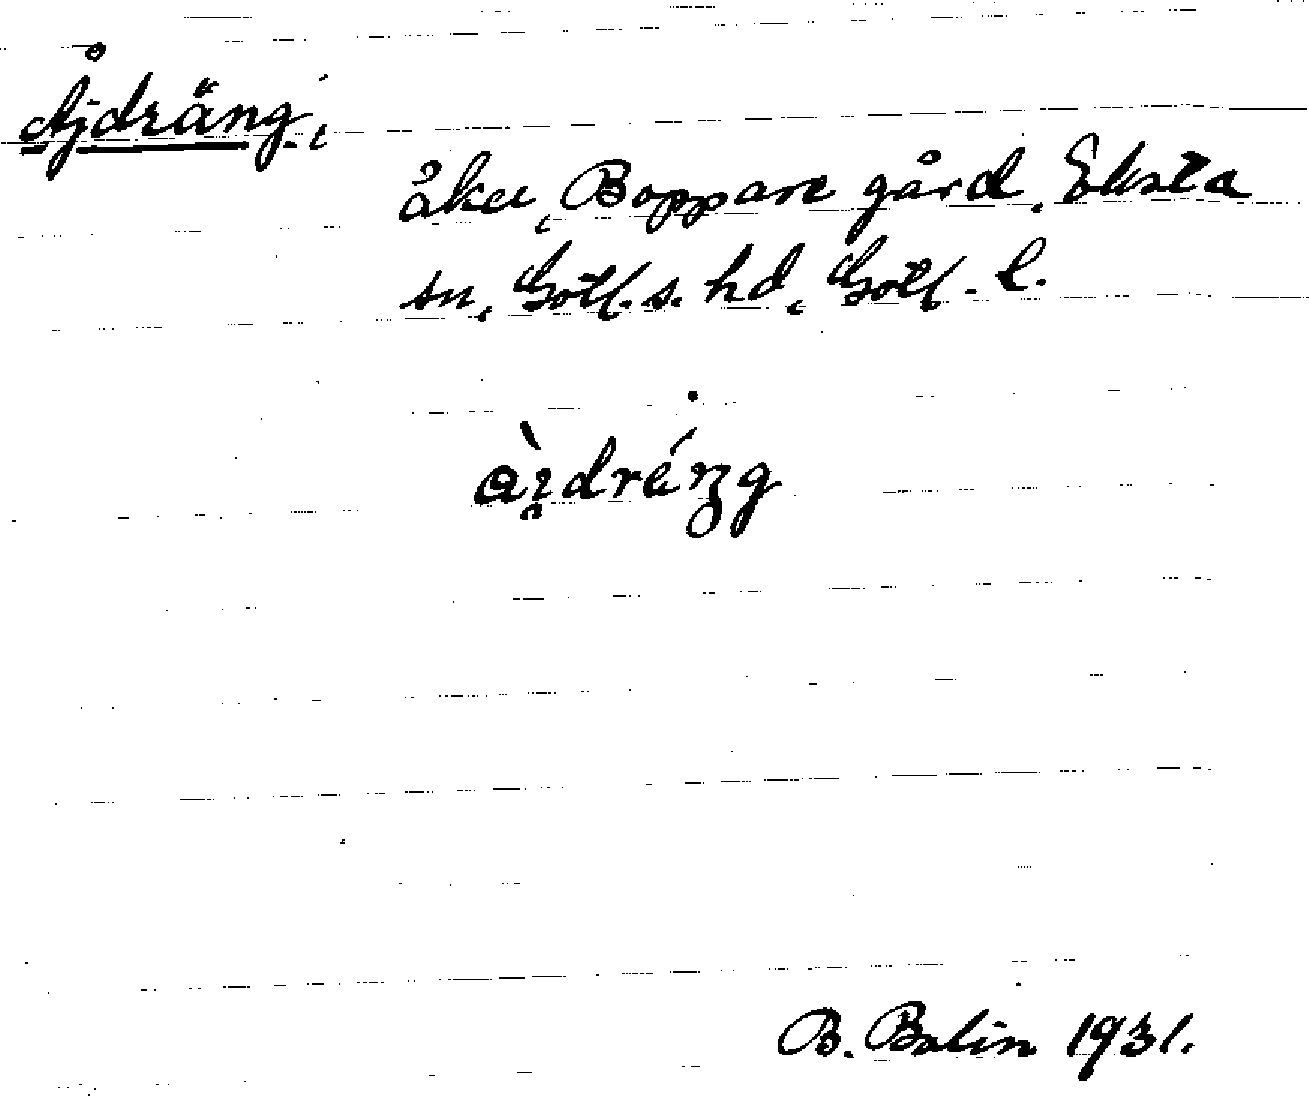 Åjdräng,
åker, Boppare gård, Eksta
sn, Gotl. s. hd, Gotl. l.
B. Bolin 1931.